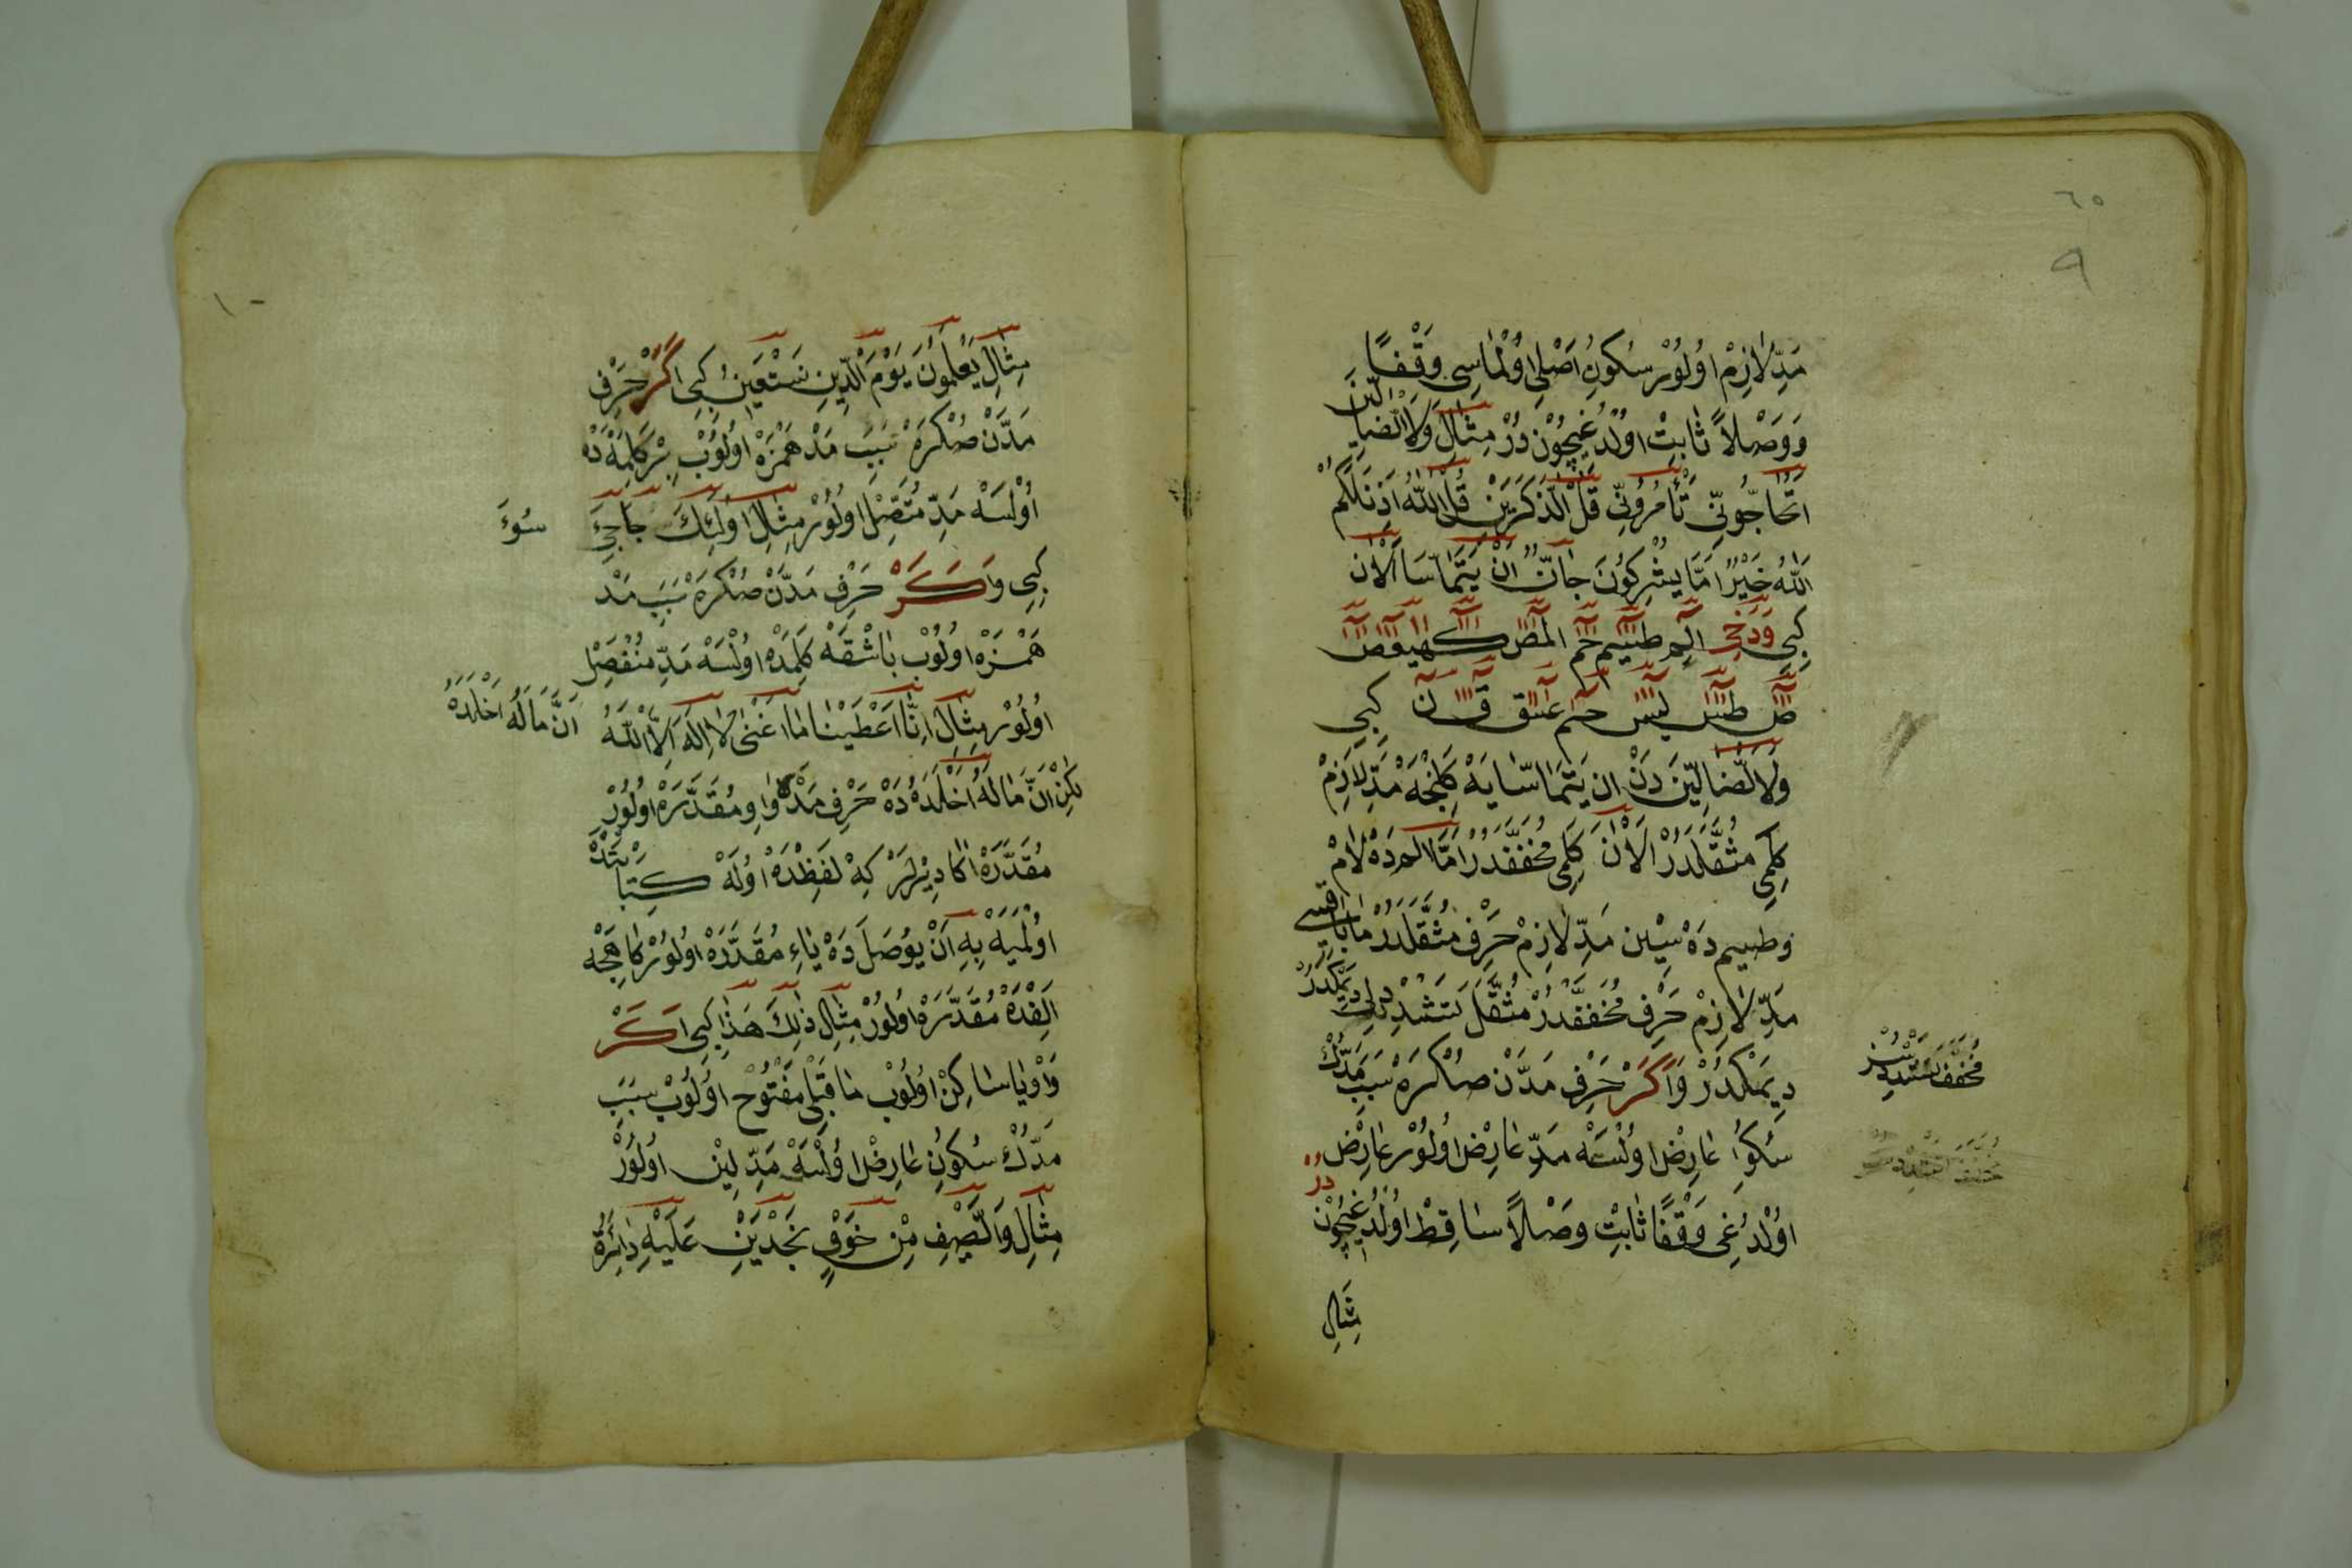 ٦٥
٩
مَدِّ لَازِمْ اوُلوُرْ سُكوُنِ اَصْلِى اوُلْمَاسِى وَقْفًا
وَوَصْلاً ثَابِتْ اوُلْدُغِيچُوْنْ دُرْ مِثَالِ وَلَا الضَّالِّينَ
اَتُحَاجُّونِّى تَأْمُرُونِّى قُلْ آلذَّكَرَيْنِ قُلْ آللّٰهُ اَذِنَ لَكُمْ
آللّٰهُ خَيْرٌ اَمَّا يُشْرِكُونَ جَانٌّ اَنْ يَتَمَاسَّا آلْاٰنَ
كِبِى وَدَخِى الٓمٓرٰ طٰسٓمٓ حٰمٓ الٓمٓصٓ كٓهٰيٰعٓصٓ
صٓ طٰسٓ يٰسٓ حٰمٓ عٓسٓقٓ قٓ نٓ كِبِى
وَلَا الضَّالِّينَ دَنْ ان يَتَمَاسَّا يَهْ كَلِنْجَهْ مَدِّ لَازِمْ
كَلِمِى مُثَقَّلَدُرْ آلْاٰنَ كَلِمِى مُخَفَّفَدُرْ اَمَّا الٓمٓرٰ دَهْ لَامْ
وَطٰسٓمٓ دَهْ سِيْن مَدِّ لَازِمْ حَرْفِ مُثَقَّلَدُرْ مَابَاقِيسِى
مَدِّ لَازِمْ حَرْفِ مُخَفَّفَدُرْ مُثَقَّلْ تَشْدِيدْلِى دِيمَكْدُرْ
مُخَفَّفْ تَشْدِيدْسُزْ
دِيمَكْدُرْ وَاَكَرْ حَرْفِ مَدَّنْ صُكْرَهْ سَبَبِ مَدُّكْ
سُكوُنِ عَارِضْ اوُلْسَهْ مَدِّ عَارِضْ اوُلوُرْ عَارِضْ دُرْ
اوُلْدُغِى وَقْفًا ثَابِتْ وَصْلاً سَاقِطْ اوُلْدُغِيچُوْنْ
مِثَالِ
١٠
مِثَالِ يَعْلَمُونَ يَوْمِ الدِّينِ نَسْتَعِينُ كِبِى اَكَرْ حَرْفِ
مَدَّنْ صُكْرَهْ سَبَبِ مَدْ هَمْزَهْ اوُلوُبْ بِرْ كَلِمَهْ دَهْ
اوُلْسَهْ مَدِّ مُتَّصِلْ اوُلوُرْ مِثَالِ اوُلٰئِكَ جَاءَ جِىءَ سُوءَ
كِبِى وَاَكَرْ حَرْفِ مَدَّنْ صُكْرَهْ سَبَبِ مَدْ
هَمْزَهْ اوُلوُبْ بَاشْقَهْ كَلِمَدَهْ اوُلْسَهْ مَدِّ مُنْفَصِلْ
اوُلوُرْ مِثَالِ اِنَّا اَعْطَيْنَا مَا اَغْنٰى لَا اِلٰهَ اِلَّا اللّٰهُ اَنَّ مَالَهُ اَخْلَدَهُ
لكِنْ اَنَّ مَالَهُ اَخْلَدَهُ دَهْ حَرْفِ مَدْ وَاوِ مُقَدَّرَهْ اوُلوُرْ
مُقَدَّرَهْ اَكَا دِيْرلَرْ كِهْ لَفْظْدَهْ اوُلَهْ كِتَابَتْدَهْ
اوُلْمَيَهْ بِهِ اَنْ يوُصَلَ دَهْ يَاءِ مُقَدَّرَهْ اوُلوُرْ كَاهِجَه
اَلِفْدَهْ مُقَدَّرَهْ اوُلوُرْ مِثَالِ ذٰلِكَ هٰذَا كِبِى اَكَرْ
وَاوْ يَا سَاكِنْ اوُلوُبْ مَا قَبْلِى مَفْتُوحْ اوُلوُبْ سَبَبِ
مَدُّكْ سُكوُنِ عَارِضْ اوُلْسَهْ مَدِّ لِيْن اوُلوُرْ
مِثَالِ وَالصَّيْفِ مِنْ خَوْفٍ نَجْدَيْنِ عَلَيْهِ دَائِرَةُ